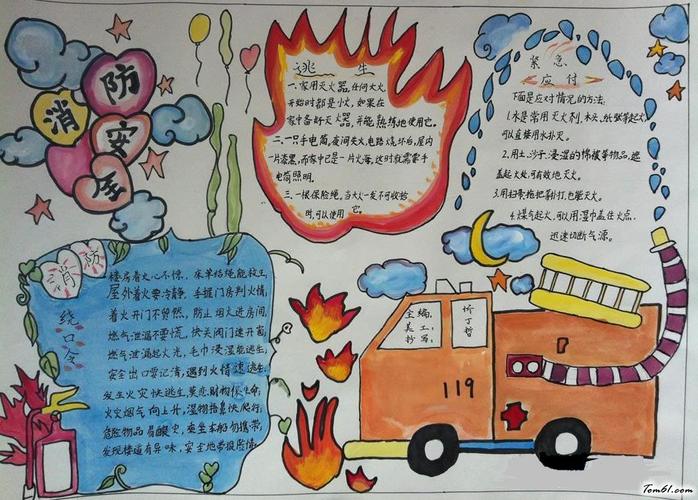 消防安全
逃生
一、家用灭火器,任何大火
开始时都是小火,如果在
家中备好灭火器,并能熟练地使用它。
二、一只手电筒,夜间失火,电路烧坏后,屋内
一片漆黑,而家中已是一片火海,这时就需要手
电筒照明。
三、一根保险绳,当大火一发不可收拾
时,可以使用它。
紧急
应付
下面是应对情况的方法:
1.水是常用灭火剂,木头、纸张等起火
可以直接用水扑灭。
2.用土、沙子、浸湿的棉被等物品,遮
盖起火处,可有效地灭火。
3.用扫帚、拖把等扑打,也能灭火。
4.煤气起火,可以用湿巾盖住火点,
迅速切断气源。
消防
绕口令
楼房着火心不惊,床单结绳能救生
屋外着火要冷静,手摸门房判火情
着火开门不贸然,防止烟火进房间
燃气泄漏不要慌,快关阀门速开窗
燃气泄漏起火光,毛巾浸湿能逃生
安全出口要记清,遇到火情速逃生
发生火灾快逃生,莫恋财物伤生命
火灾烟气向上升,湿物捂鼻快爬行
危险物品易酿灾,乘坐车船勿携带
发现楼道有异味,安全地带报险情
主编:
美工:
抄写:
119
Tom61.com